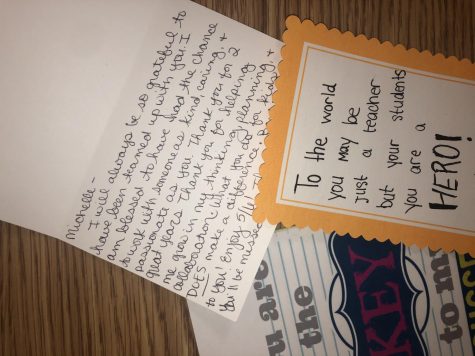 Michelle -
I will always be so grateful to
have been teamed up with you. I
am blessed to have had the chance
to work with someone as kind, caring, +
passionate as you. Thank you for 2
great years. Thank you for helping
me grow in my thinking, planning +
collaboration! What you do for kids
DOES make a difference.
to you! Enjoy 5/6
You'll be misse
To the world
you may be
just a teacher
but your students
you are a
HERO!
u are
the
KEY
to m